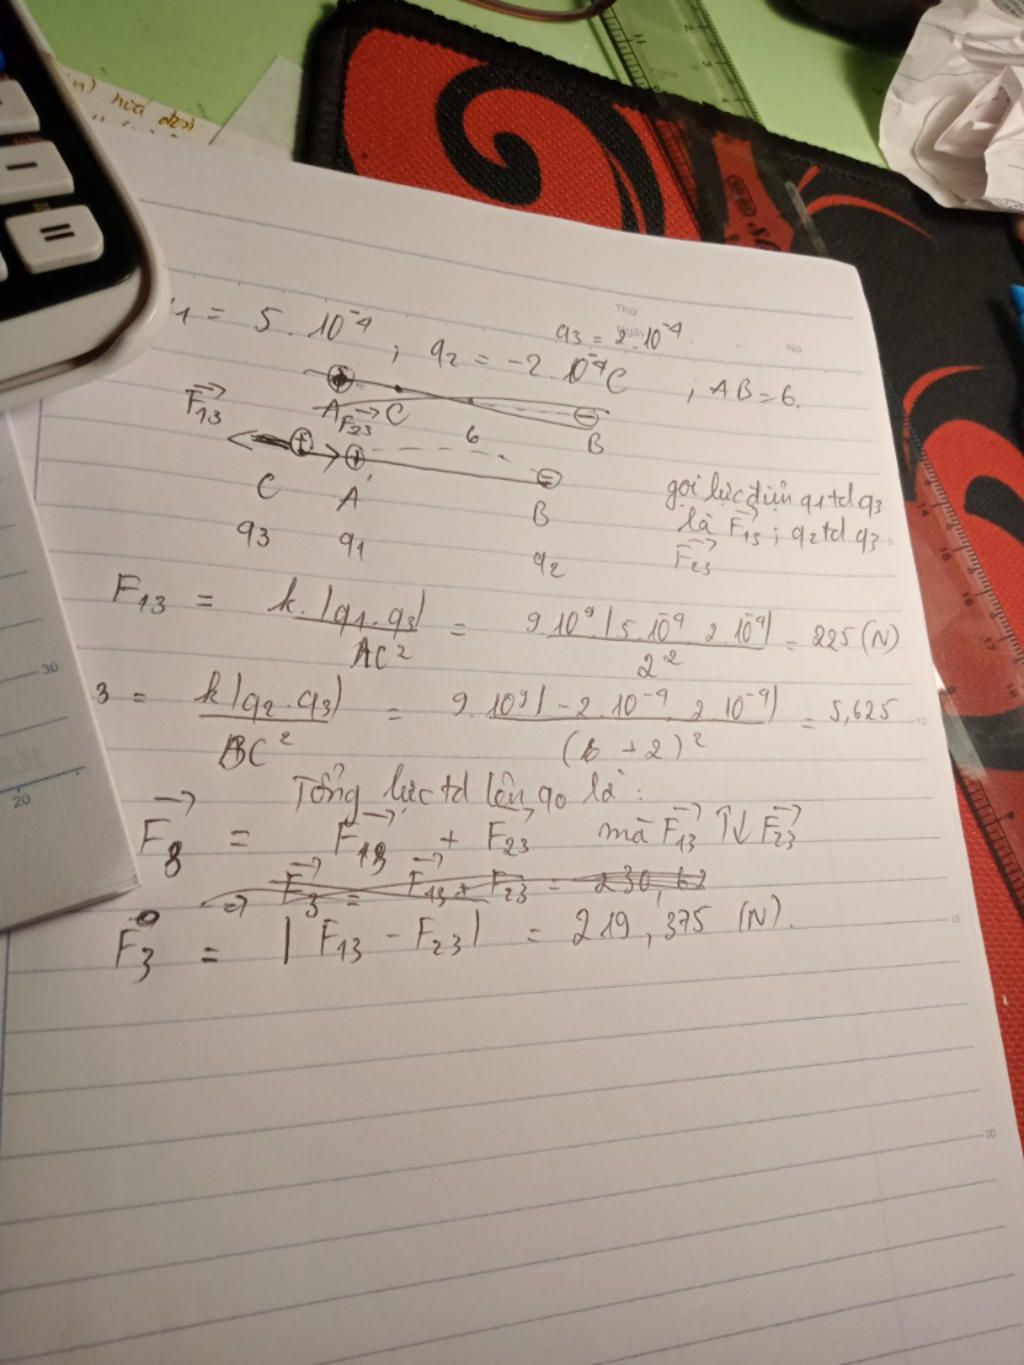 hoá đơn
1 = 5 . 10⁻⁴ ; q2 = -2 . 10⁻⁴C ; AB = 6.
q3 = 2.10⁻⁴.
Thứ
Ngày
No.
A C B
F13 F23 6
C A B
q3 q1 q2
gọi lực điện q1 td q3
là F13 ; q2 td q3
F23
F13 = k.|q1.q3| / AC² = 9.10⁹.|5.10⁻⁴ 2.10⁻⁴| / 2² = 225 (N)
3 = k|q2.q3| / BC² = 9.10⁹|-2.10⁻⁴ 2.10⁻⁴| / (6 + 2)² = 5,625
Tổng lực td lên q0 là :
F3 = F13 + F23 mà F13 ↑↓ F23
=> F3 = F13 + F23 = 230,62
F3 = | F13 - F23 | = 219,375 (N).
30
20
10
15
20